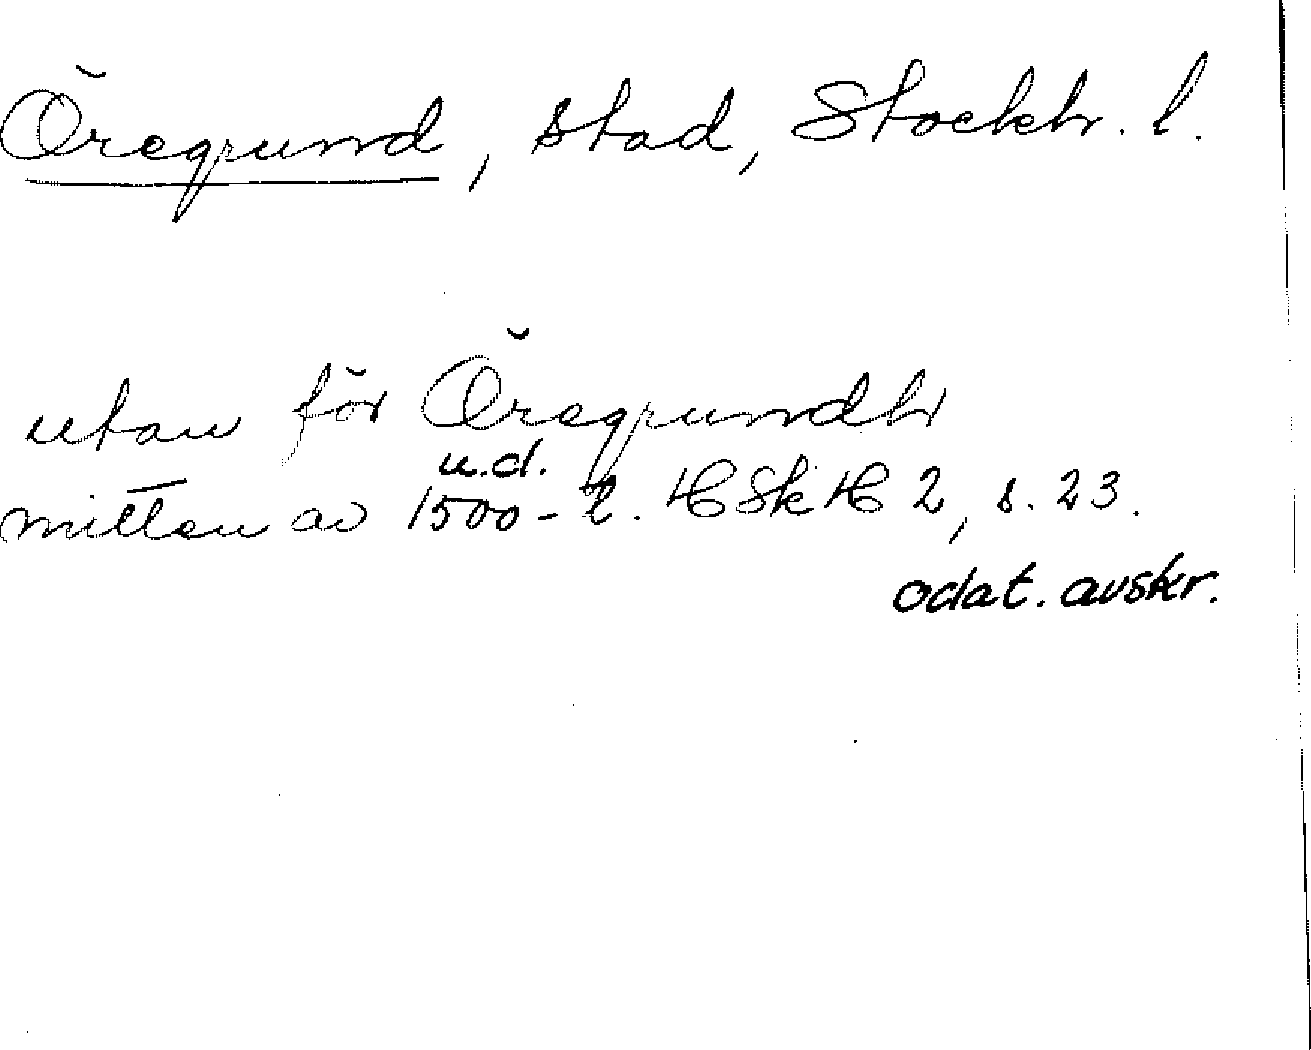 Öregrund, stad, Stockh. l.
utan för Öregrundh
u.d.
mitten av 1500-t. HSkH 2, s. 23.
odat. avskr.